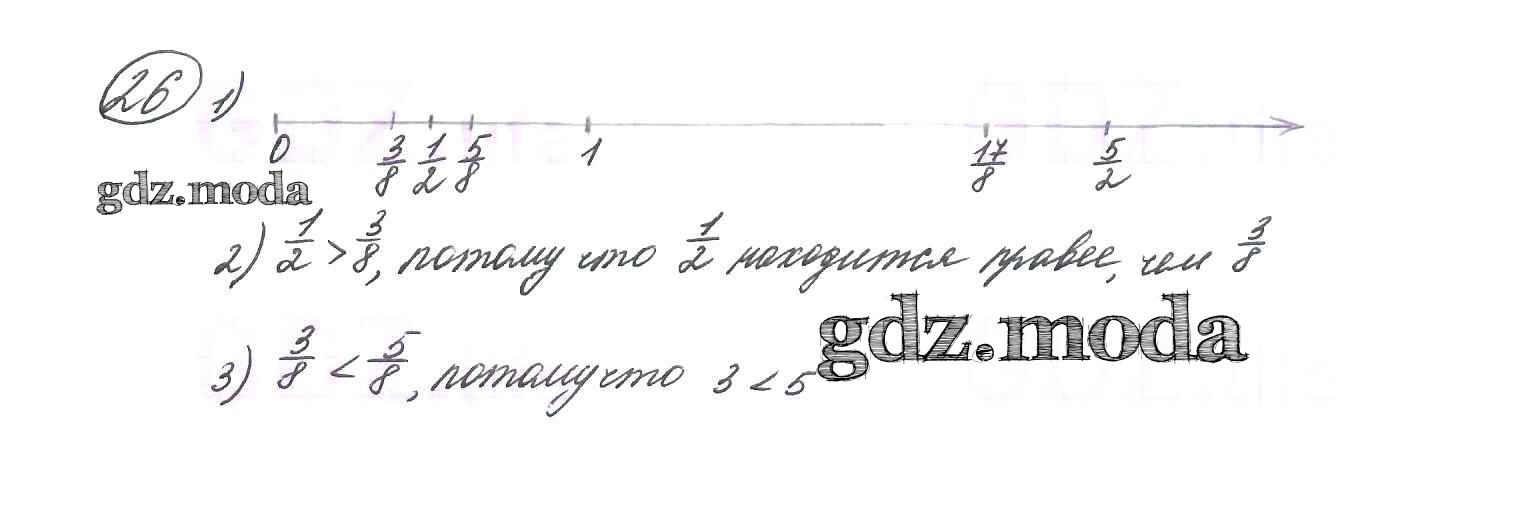 26 1)
0 3/8 1/2 5/8 1 17/8 5/2
gdz.moda
2) 1/2 > 3/8, потому что 1/2 находится правее, чем 3/8
gdz.moda
3) 3/8 < 5/8, потому что 3 < 5